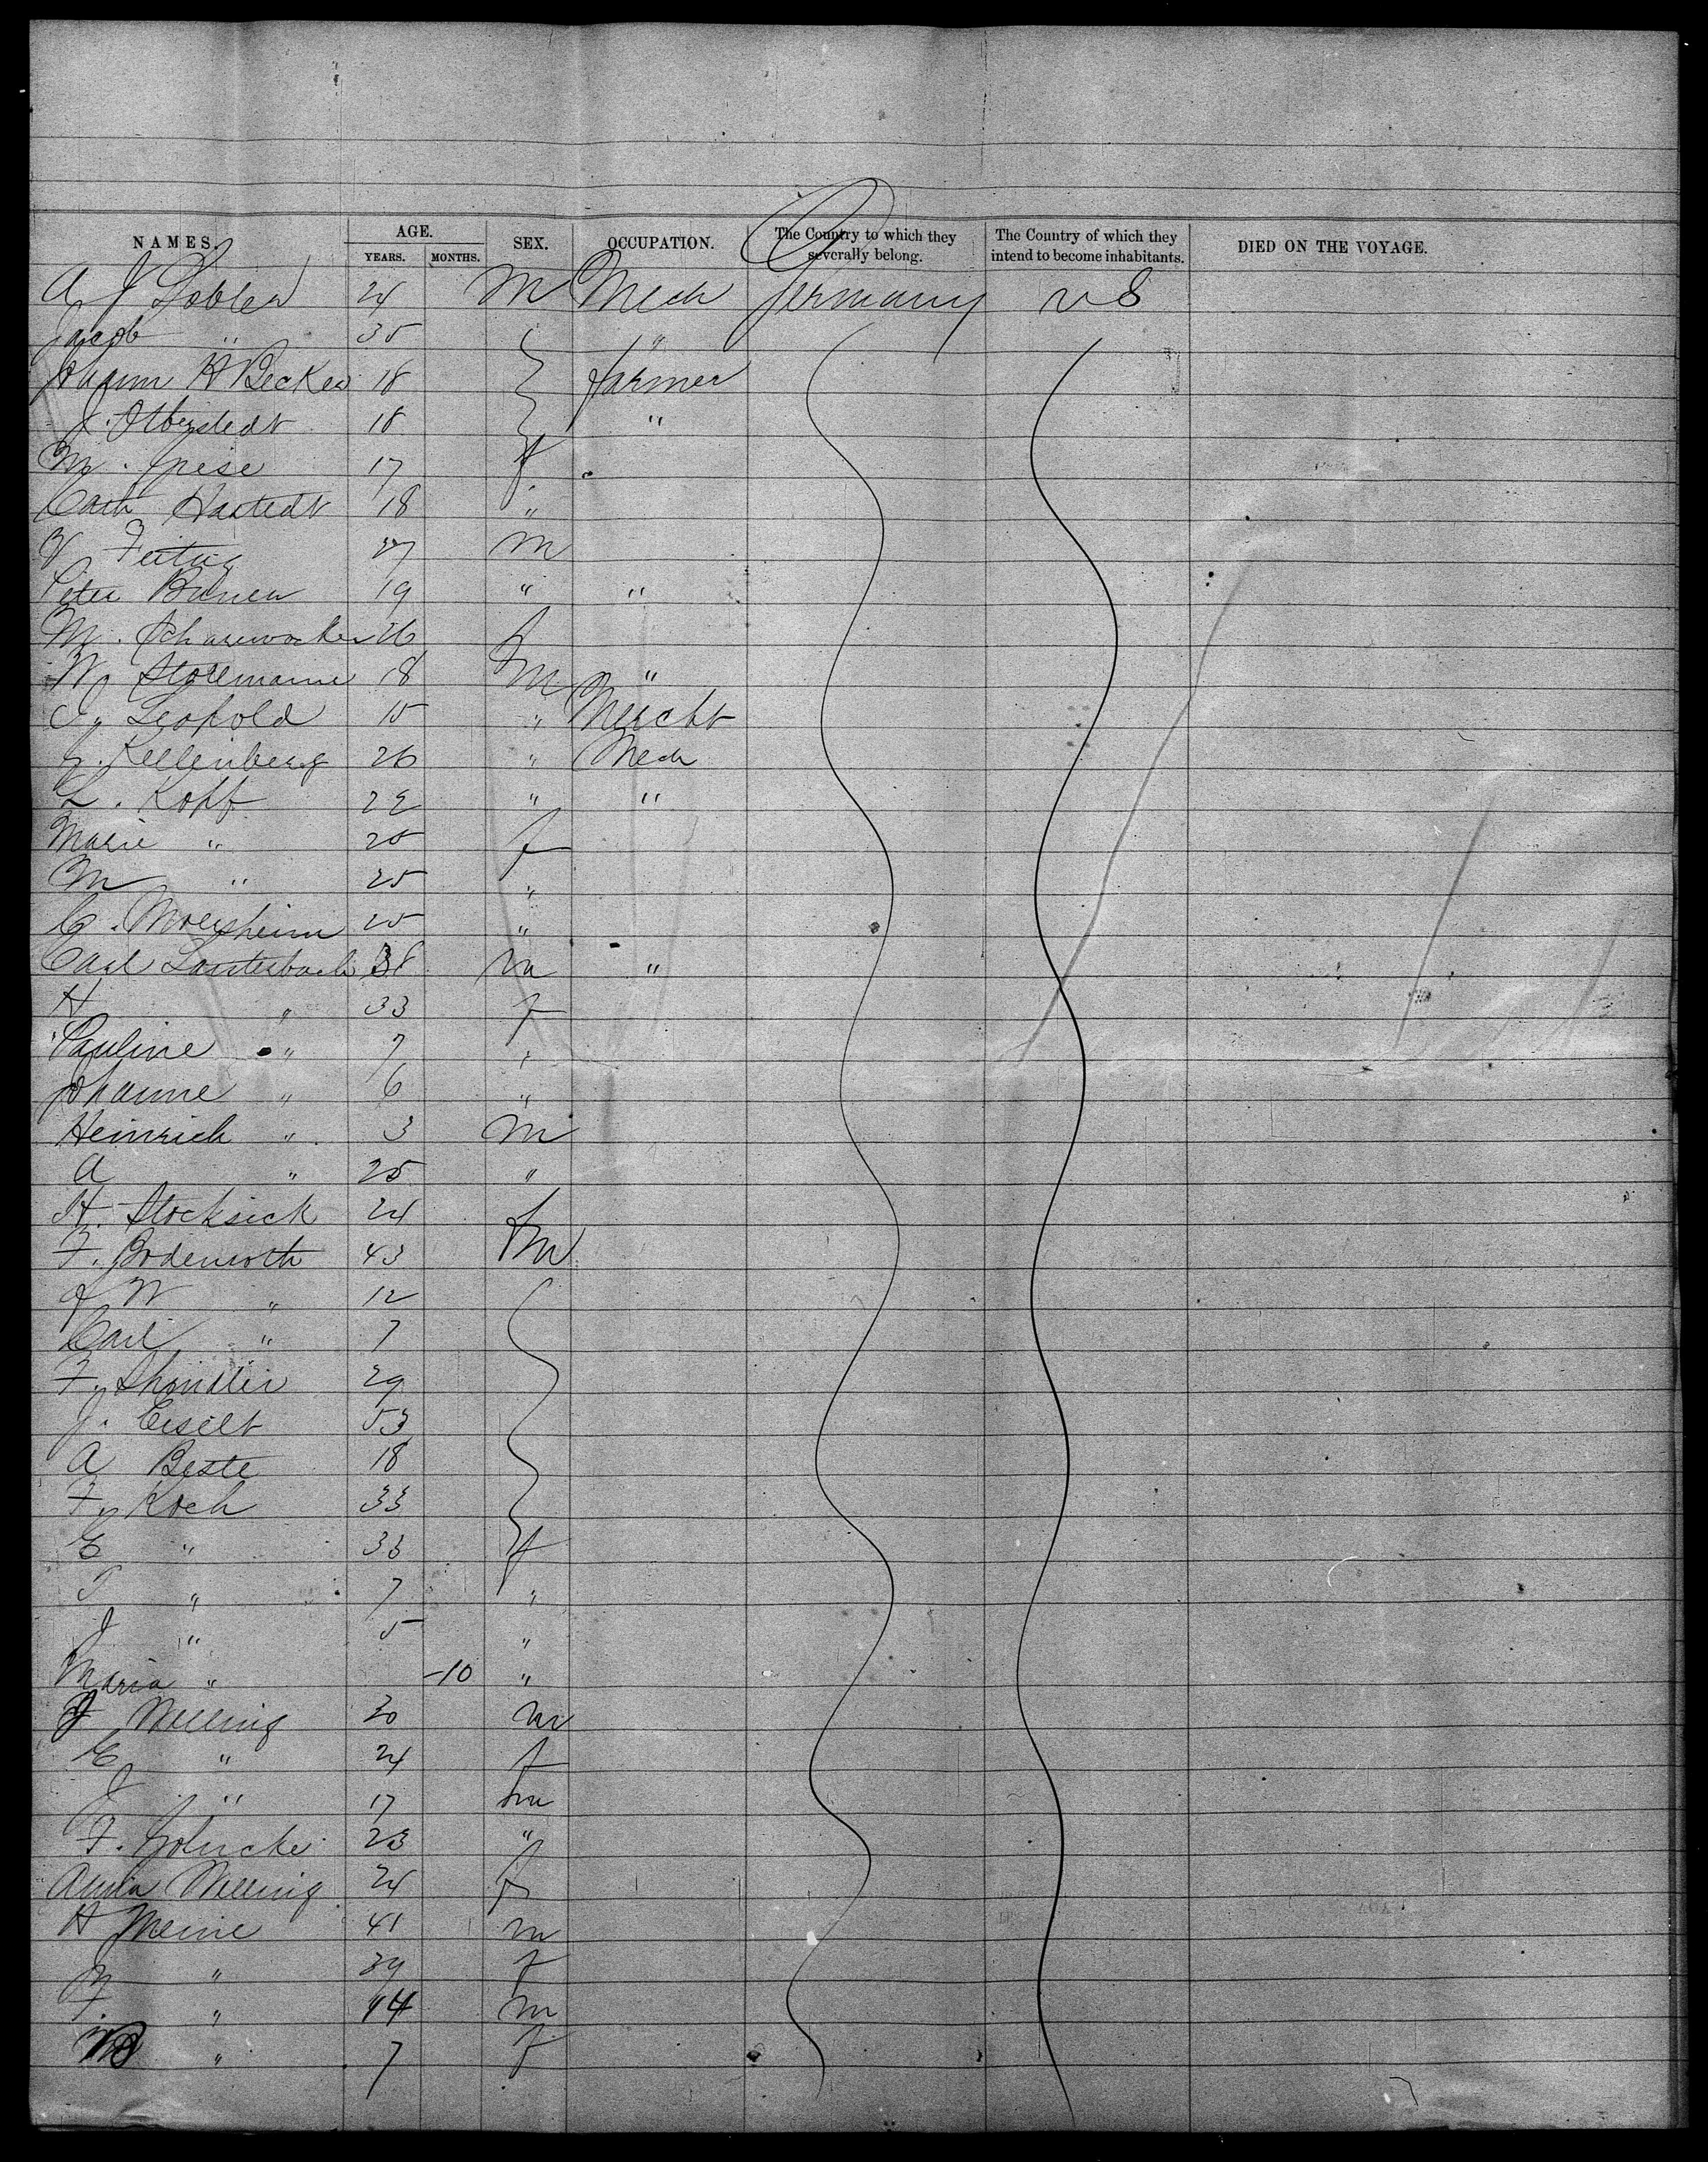 NAMES. AGE. SEX. OCCUPATION. The Country to which they severally belong. The Country of which they intend to become inhabitants. DIED ON THE VOYAGE.
YEARS. MONTHS.
A J Dobler 24 M Mech Germany U S
Jacob " 35 "
Johann H Becker 18 farmer
J. Olberstedt 18 "
M. Giese 17 f
Cath Hastedt 18 "
27 m
Peter 19 " "
M. 26 f
W. Stollmann 18 m "
J. Leopold 15 " Mercht
G. Kellenberg 26 " Mech
L. Kopf 22 " "
Marie " 20 f
M " 25 "
C. Morsheim 25 "
Carl Lauterbach 38 m "
H " 33 f
Pauline " 7 "
Johanne " 6 "
Heinrich " 3 m
A " 25 "
H. Stocksick 24 f
F. Bodenroth 43 m
W "  12
Carl " 7
F. Shindler 29
J. Eiselt 53
A Beste 18
F. Koch 33
E " 33 f
" 7 "
J " 5 "
Maria " -10 "
J Welling 30 m
E " 24 f
J " 17 m
F. 23 "
Anna Welling 24 f
H Meine 41 m
" 39 f
F. " 14 m
" 7 f